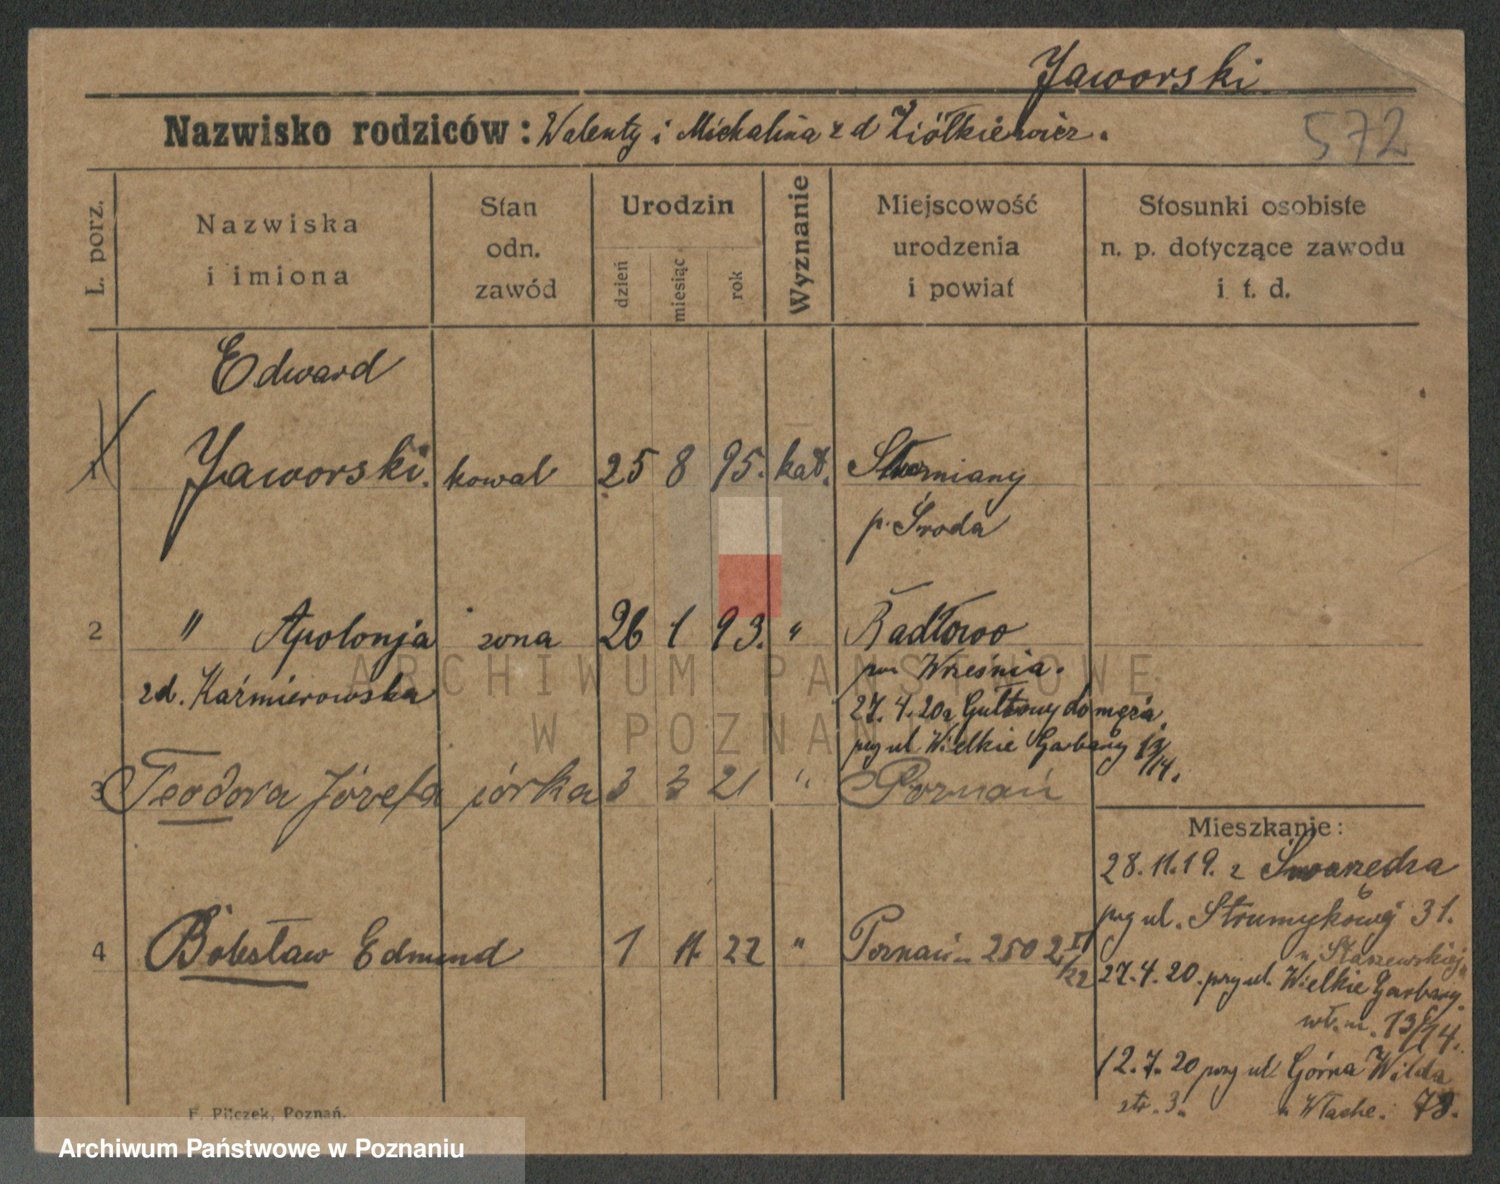 Jaworski
Nazwisko rodziców: Walenty i Michalina z d Ziółkiewicz.
572
L. porz.
Nazwiska
i imiona
Stan
odn.
zawód
Urodzin
dzień
miesiąc
rok
Wyznanie
Miejscowość
urodzenia
i powiat
Stosunki osobiste
n. p. dotyczące zawodu
i t. d.
Edward
1 Jaworski. kowal 25 8 95. kat.
p. Środa
2 " Apolonja żona 26 1 93. "
zd. Kaźmierowska
Radłowo
pow Września.
27.4.20 z Gułtowy do męża
przy ul. Wielkie Garbary 13/14.
3 Teodora Józefa córka 3 3 21 " Poznań
4 Bolesław Edmund 1 11 22 " Poznań 2502 I/22
Mieszkanie:
28.11.19. z Swarzędza
przy ul. Strumykowej 31.
u Staszewskiej
27.4.20. przy ul. Wielkie Garbary
13/14.
12.7.20 przy ul Górna Wilda
str. 3. 78.
F. Pilczek, Poznań.
ARCHIWUM PAŃSTWOWE
W POZNANIU
Archiwum Państwowe w Poznaniu